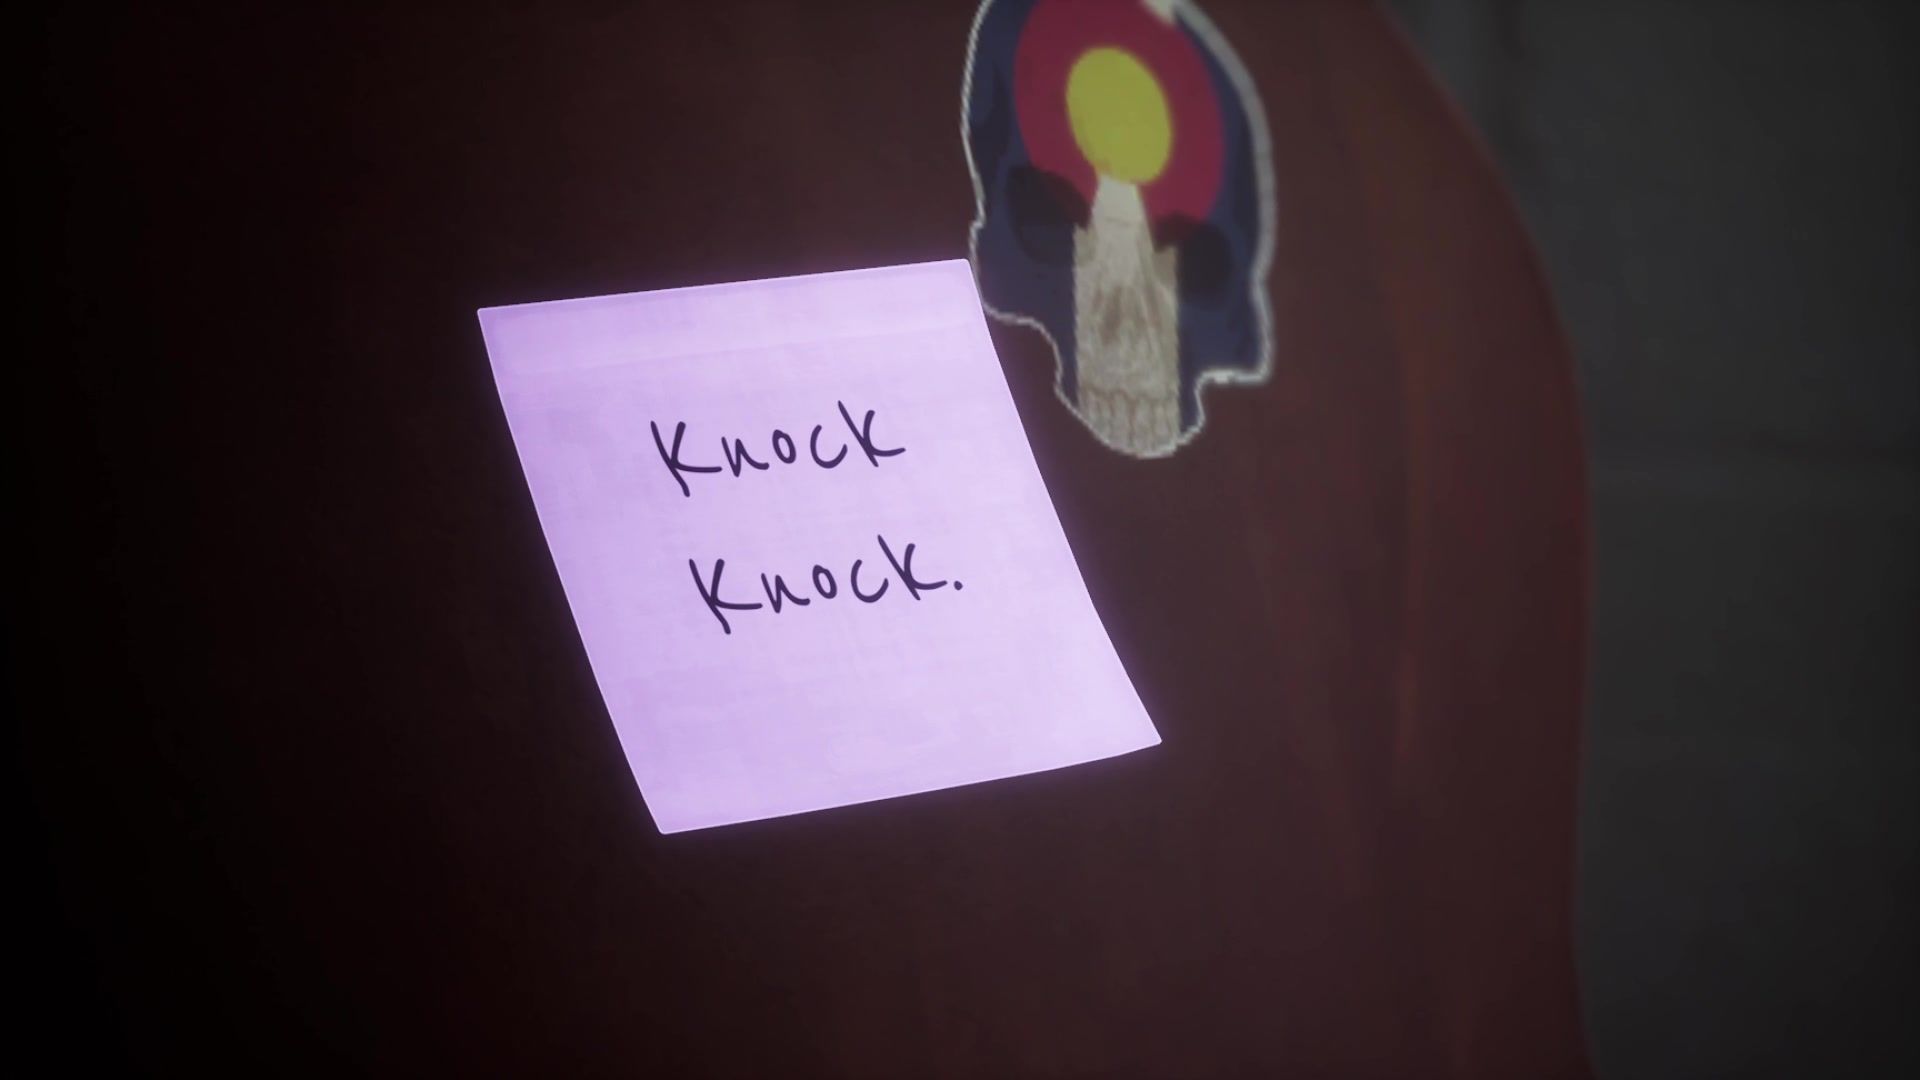 Knock
Knock.